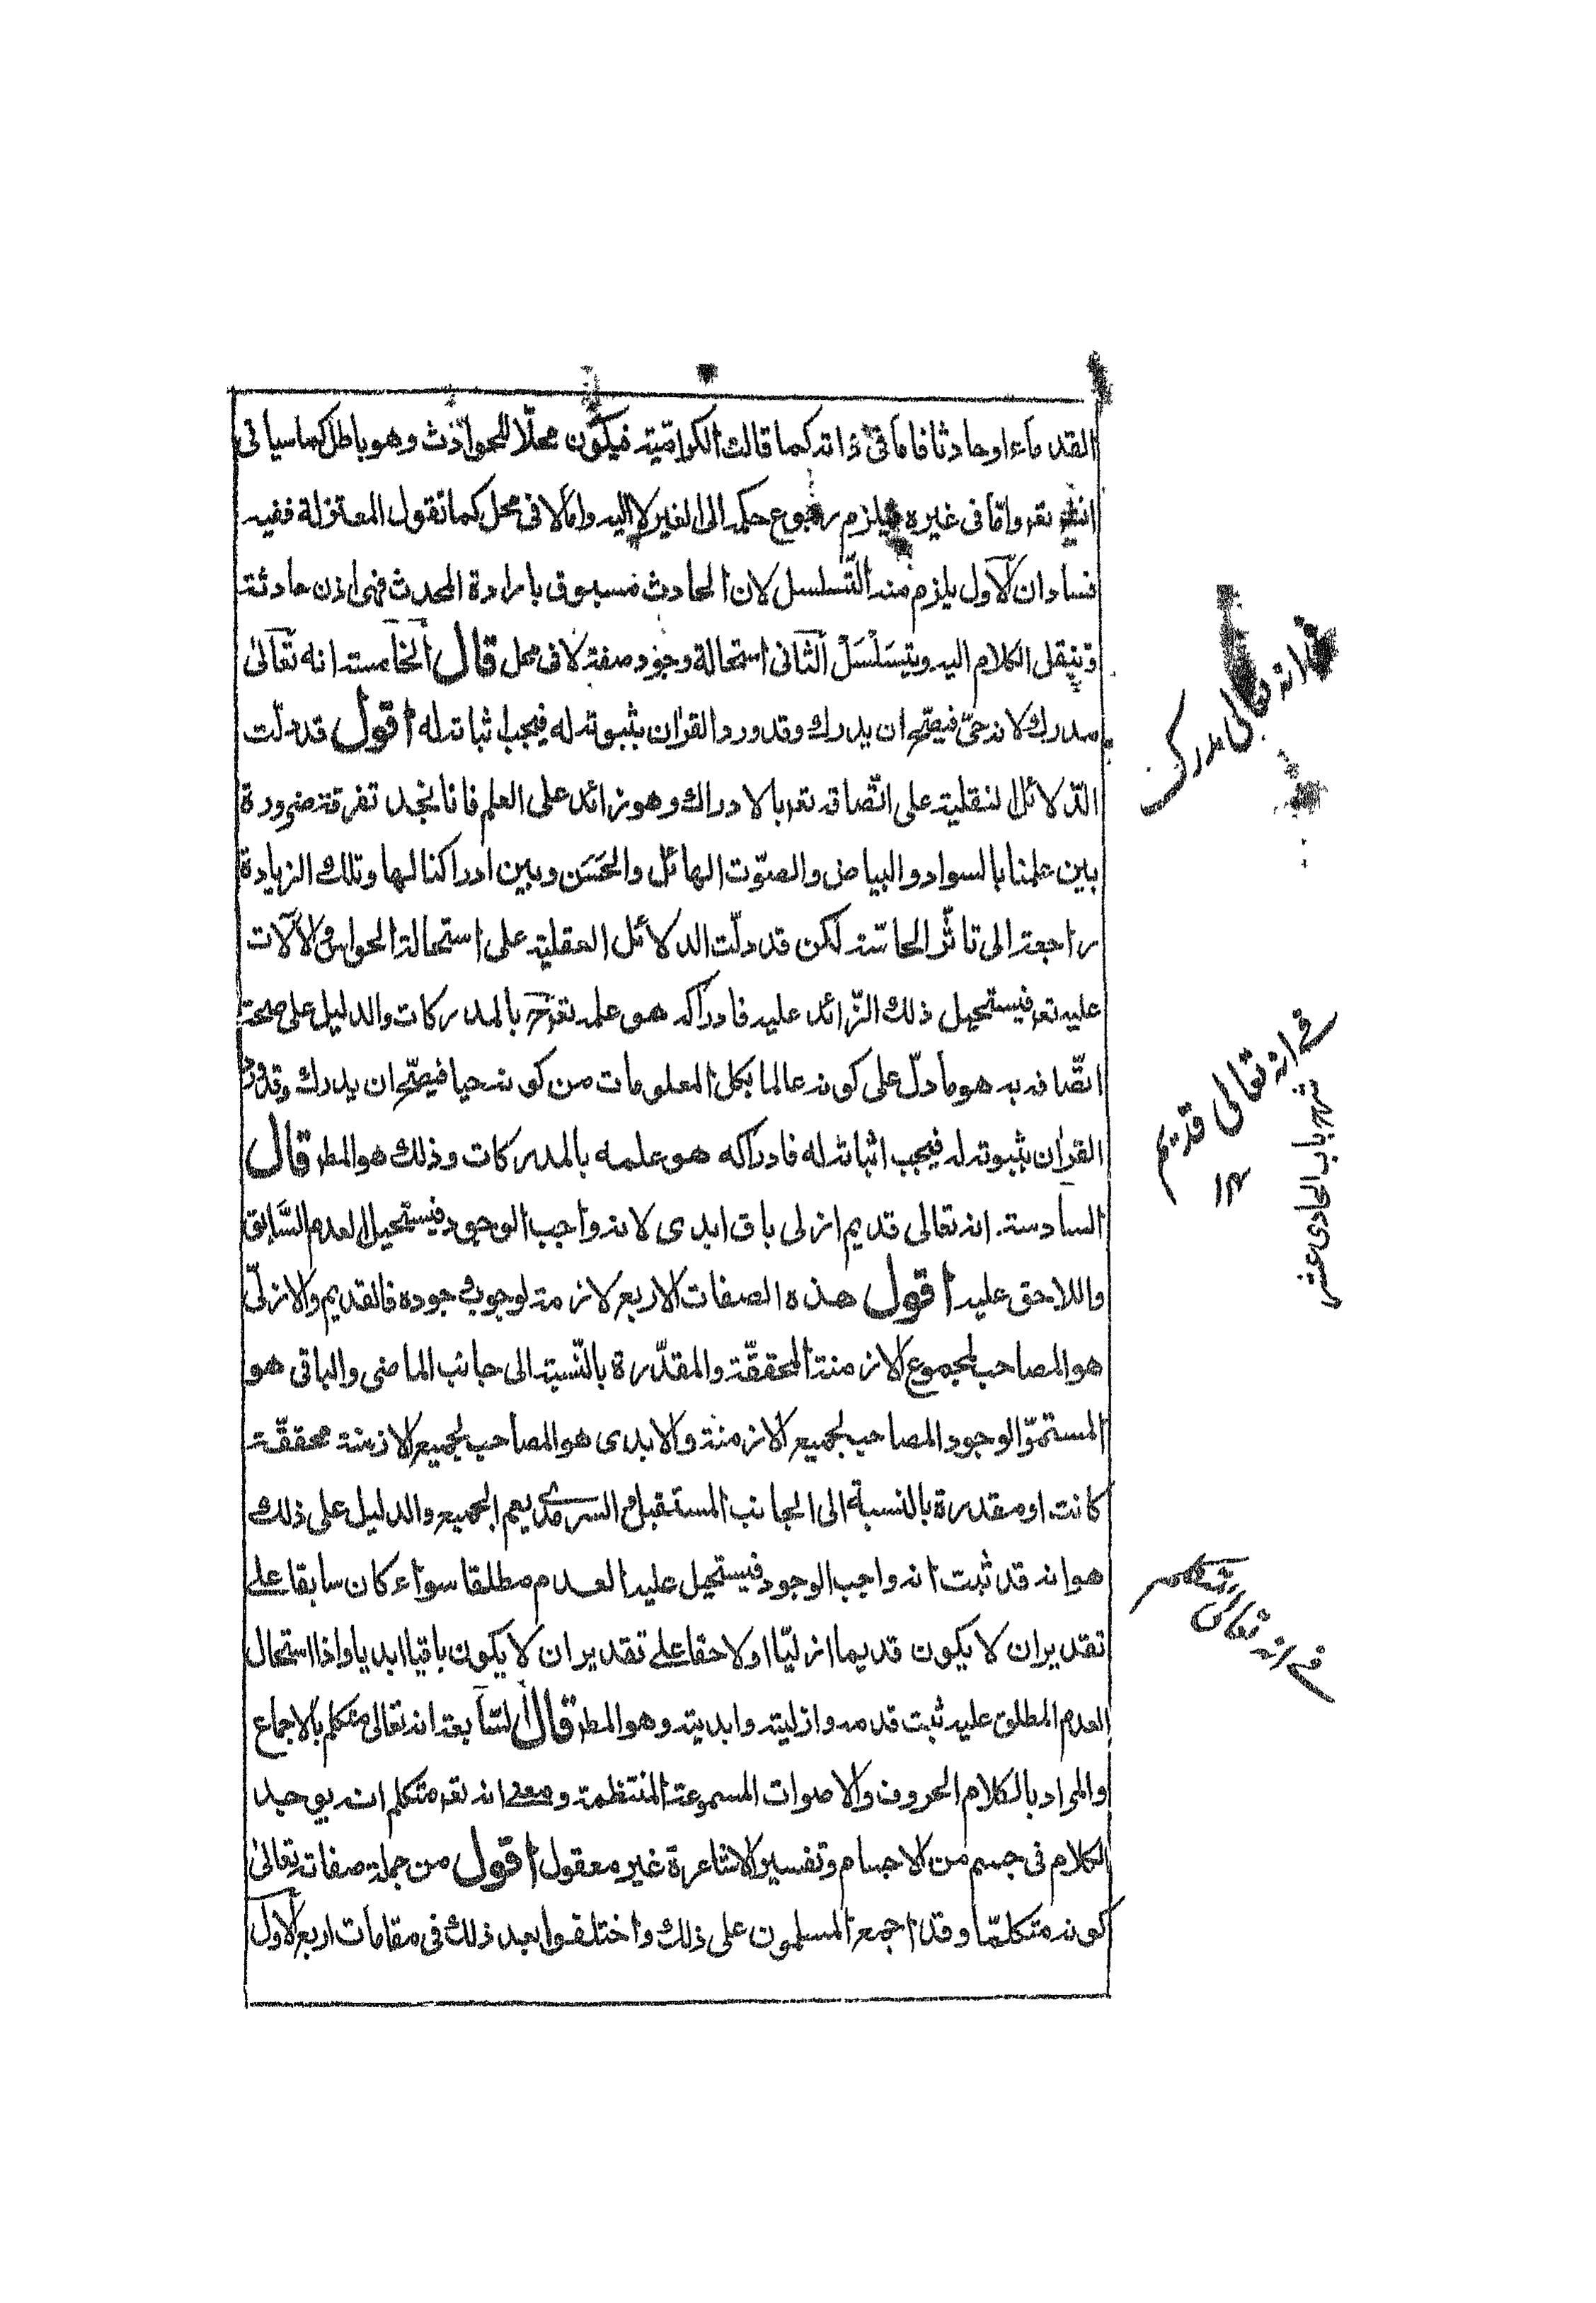 القدماء او حادثا فاما فى ذاته كما قالت الكرامّية فيكون محلّا للحوادث وهو باطل كما سياتى
انشاء تعہ وامّا فى غيره فيلزم رجوع حكمه الى الغير لا اليه وامّا لا فى محل كما تقول المعتزلة ففيه
فسادان الاول يلزم منه التّسلسل لان الحادث مسبوق بارادة المحدث فهى اذن حادثة
وننقل الكلام اليه ويتسَلْسَلْ الثانى استحالة وجود صفة لا فى محل قال الخامسة انه تعالىٰ
مدرك لانه حىّ فيصحّ ان يدرك وقد ورد القران بثبوته له فيجب اثباته له اقول قد دلت
الدّلائل النقلية على اتّصافه تعہ بالادراك وهو زائد على العلم فانا نجد تفرقة ضرورة
بين علمنا بالسواد والبياض والصوّت الهائل والحَسَن وبين ادراكنا لها وتلك الزيادة
راجعة الى تاثّر الحاسّة لكن قد دلّت الدلائل العقلية على استحالة الحواس والآلات
عليه تعہ فيستحيل ذلك الزّائد عليه فادراكه هو علمه تعہ ح بالمدركات والدليل على صحة
اتّصافه به هو ما دلّ على كونه عالما بكل المعلومات من كونه حيا فيصحّ ان يدرك وقد ورد
القران بثبوته له فيجب اثباته له فادراكه هو علمه بالمدركات وذلك هو المطہ قال
السادسة. انه تعالى قديم ازلى باق ابدى لانه واجب الوجود فيستحيل العدم السّابق
واللاحق عليه اقول هذه الصفات الاربع لازمة لوجوب وجوده فالقديم والازلىّ
هو المصاحب لمجموع الازمنة المحققّة والمقدّرة بالنّسبة الى جانب الماضى والباقى هو
المستمرّ الوجود المصاحب لجميع الازمنة والابدى هو المصاحب لجميع الازمنة محققّة
كانت او مقدرة بالنسبة الى الجانب المستقبل والسرمدى يعم الجميع والدليل على ذلك
هو انه قد ثبت انه واجب الوجود فيستحيل عليه العدم مطلقا سواء كان سابقا على
تقدير ان لا يكون قديما ازليّا او لاحقا على تقدير ان لا يكون باقيا ابديا واذا استحال
العدم المطلق عليه ثبت قدمه وازليته وابديته وهو المطہ قال السّابعة انه تعالى متكلم بالاجماع
والمراد بالكلام الحروف والاصوات المسموعة المنتظمة ومعنى انه تعہ متكلم انه يوجد
الكلام فى جسم من الاجسام وتفسير الاشاعرة غير معقول اقول من جملة صفاته تعالىٰ
كونه متكلمّا وقد اجمع المسلمون على ذلك واختلفوا بعد ذلك فى مقامات اربع الاول
فى انه تعالى مدرك
فى انه تعالى قديم
١٢
شرح باب الحادى عشر
فى انه تعالى متكلم